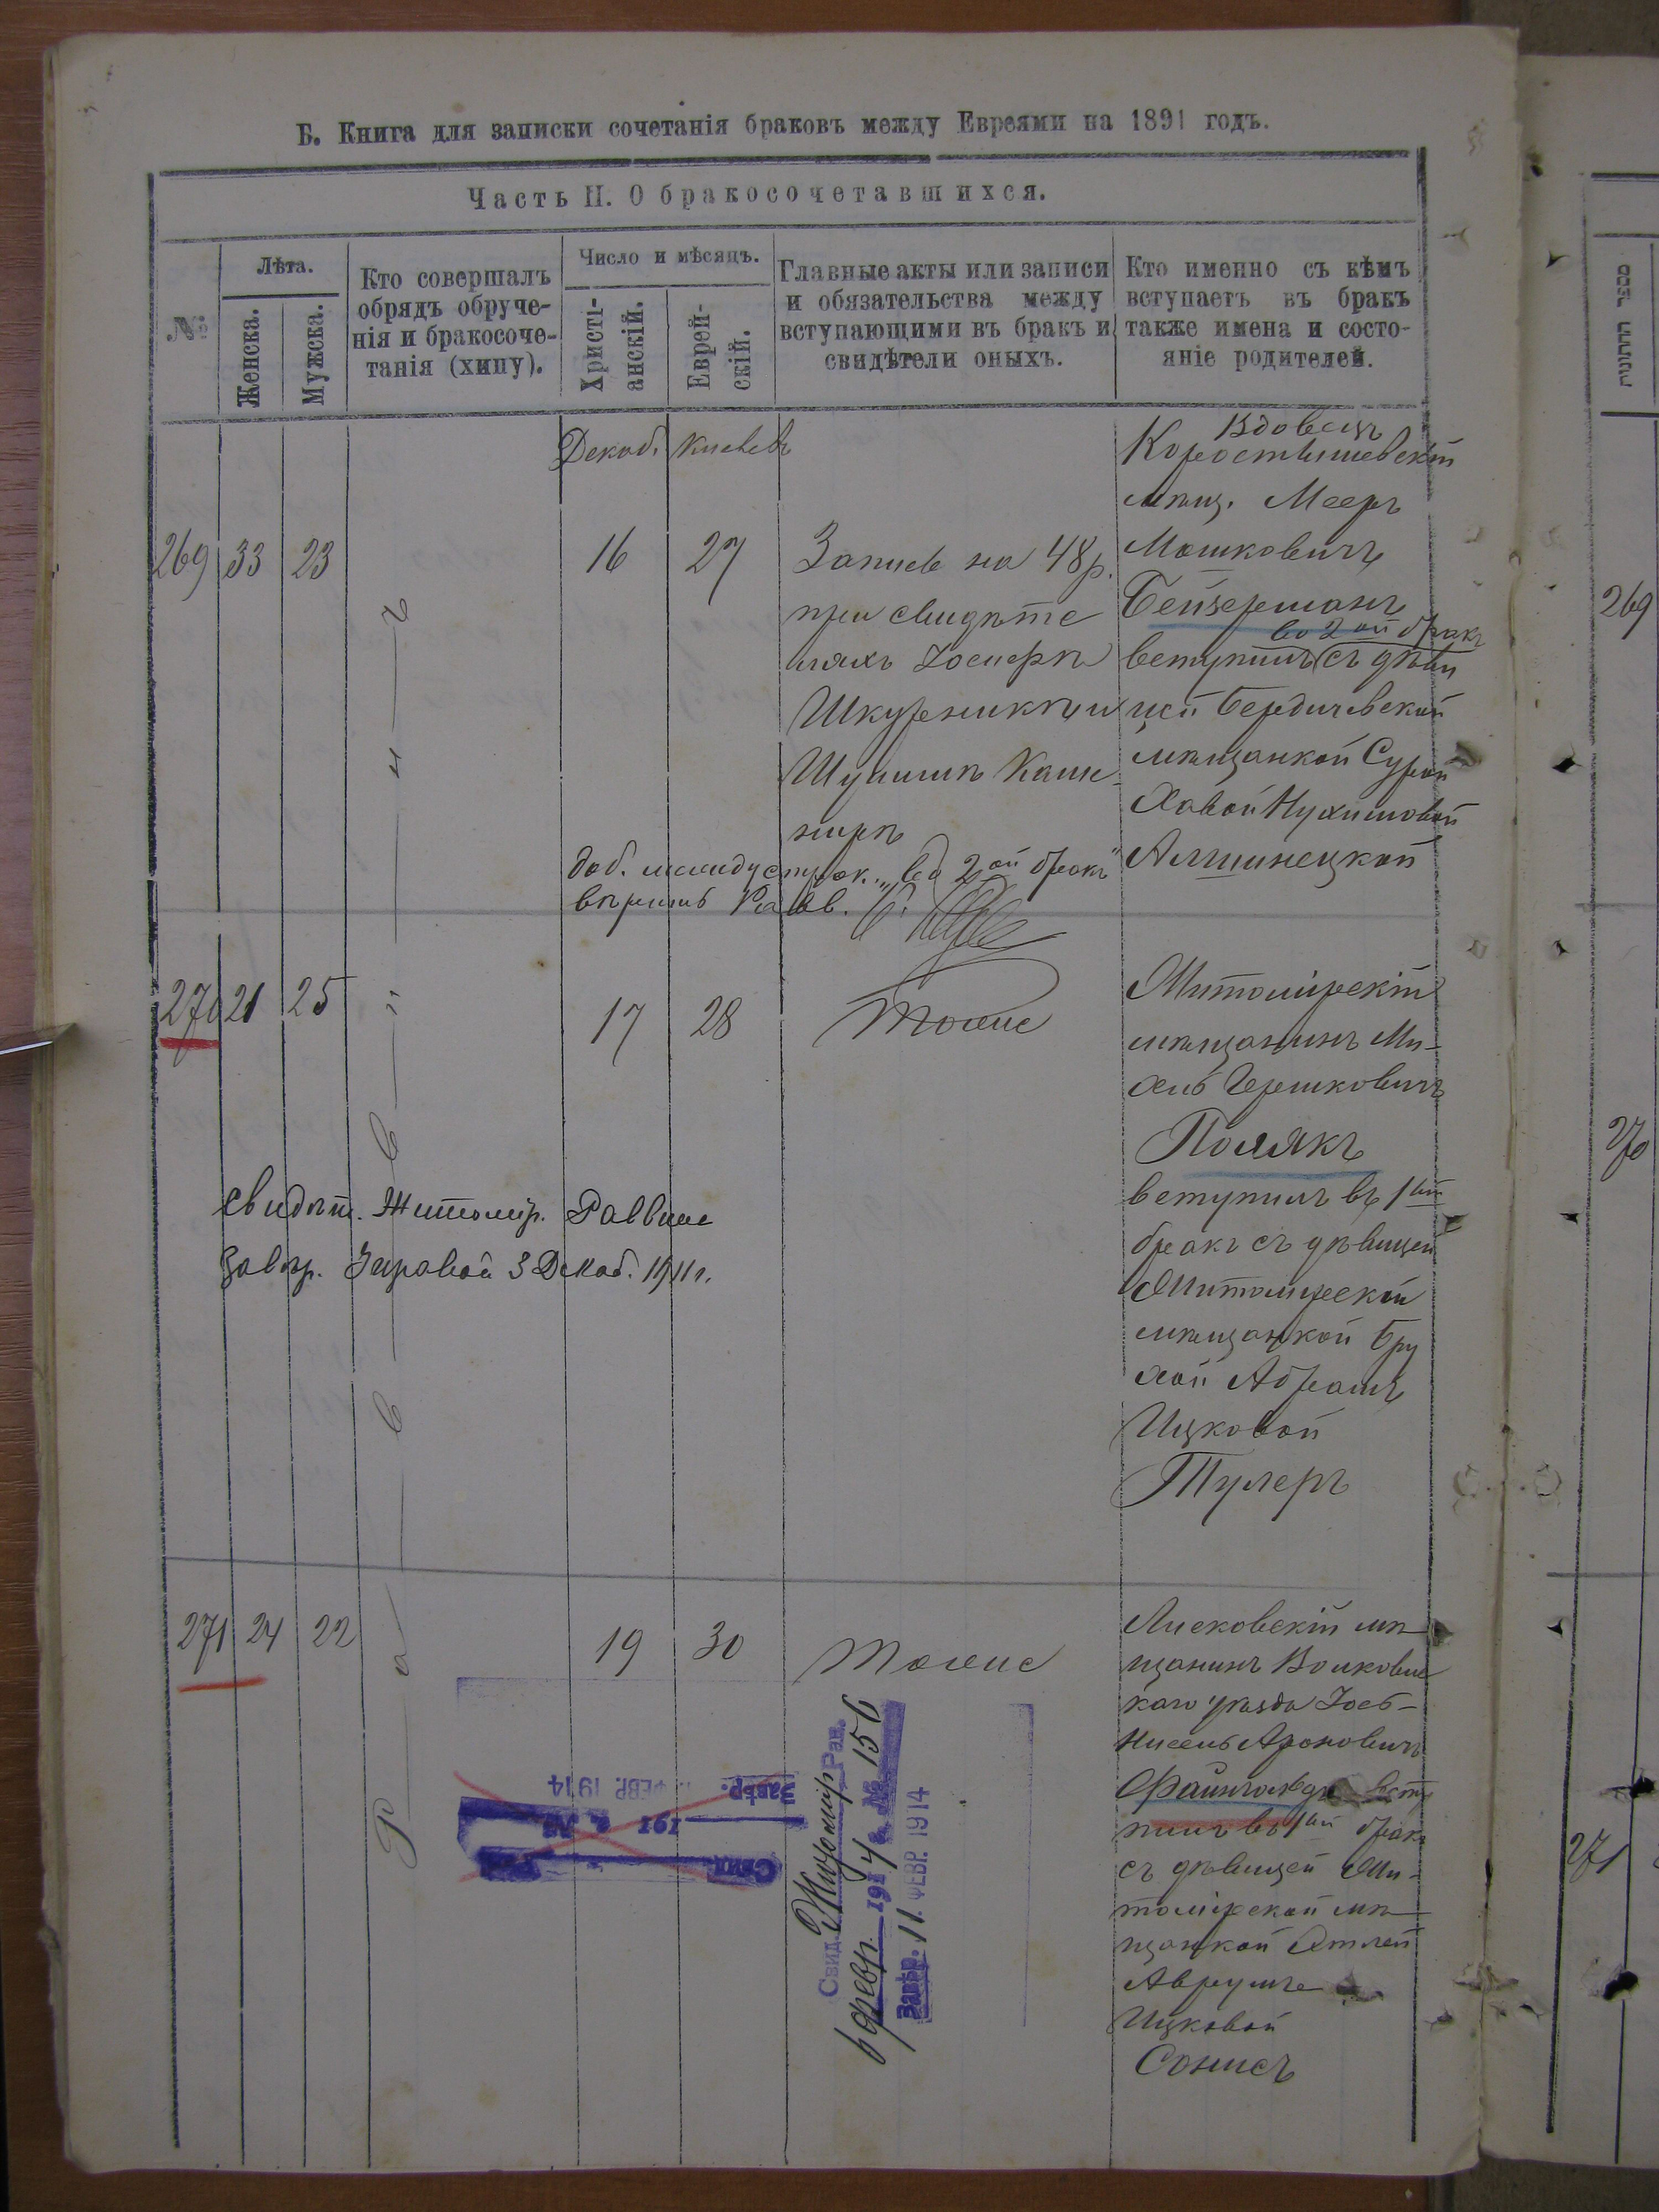 Б. Книга для записки сочетанія браковъ между Евреями на 1891 годъ.
Часть II. О бракосочетавшихся.
№
Лѣта.
Женска.
Мужска.
Кто совершалъ
обрядъ обруче-
нія и бракосоче-
танія (хипу).
Число и мѣсяцъ.
Христі-
анскій.
Еврей-
скій.
Главные акты или записи
и обязательства между
вступающими въ бракъ и
свидѣтели оныхъ.
Кто именно съ кѣмъ
вступаетъ въ бракъ
также имена и состо-
яніе родителей.
Декаб. Кислевъ
269 33 23
Р а в в и н ъ
16 27
Запись на 48 р.
при свидѣте
ляхъ Іосифѣ
Шкурникѣ и
Шулимѣ Каш-
нирѣ
Вдовецъ
Коростышевскій
мѣщ. Мееръ
Мошковичъ
Бейзерманъ
во 2ой бракъ
вступилъ съ дѣви
цей Бердичевской
мѣщанкой Сурой
Хавой Нухимовой
доб. между строк. „во 2ой бракъ"
вѣрно Равв.
270 21 25
17 28
Тоже
Житомірскій
мѣщанинъ Ми-
хель Гершковичъ
Полякъ
вступилъ въ 1ый
бракъ съ дѣвицей
Житомірской
мѣщанкой Бру
хой Абрамъ
Ицковой
Тулеръ
Свидѣт. Житомір. Раввина
Завѣр. Управой 3 Декаб. 1911 г.
271 24 22
19 30
Тоже
Лисковскій мѣ
щанинъ Волковыс
каго уѣзда Іось-
Нисель Ароновичъ
Файнгольдъ всту
пилъ въ 1ый бракъ
съ дѣвицей Жи-
томірской мѣ
щанкой Этлей
Аврумъ
Ицковой
Сонисъ
Свид. Житомір Рав.
6 февр. 1914 г. № 156
Завѣр. 11 ФЕВР. 1914
Свид.
191 г. №
Завѣр. ФЕВР. 1914
269
270
271